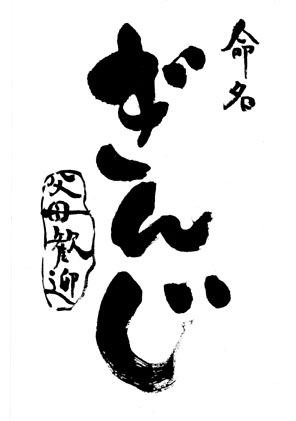 命名
ぎんじ
父母歓迎